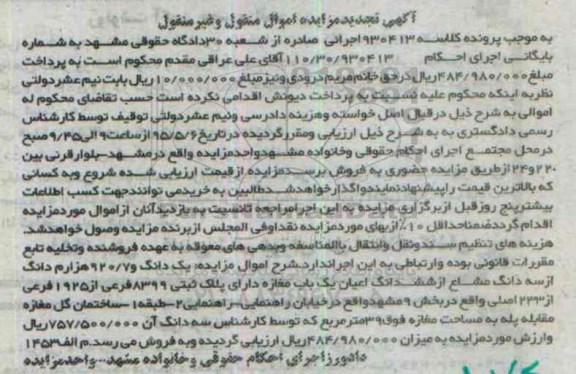 آگهی تجدید مزایده اموال منقول و غیر منقول
به موجب پرونده کلاسه ۹۳۰۴۱۳ اجرائی صادره از شعبه ۳۰ دادگاه حقوقی مشهد به شماره
بایگانی اجرای احکام ۱۱۰/۳۰/۹۳۰۴۱۳ آقای علی عراقی مقدم محکوم است به پرداخت
مبلغ ۴۸۴/۹۸۰/۰۰۰ ریال در حق خانم مریم درودی و نیز مبلغ ۱۰/۰۰۰/۰۰۰ ریال بابت نیم عشر دولتی
نظر به اینکه محکوم علیه نسبت به پرداخت دیونش اقدامی نکرده است حسب تقاضای محکوم له
اموالی به شرح ذیل در قبال اصل خواسته و هزینه دادرسی و نیم عشر دولتی توقیف توسط کارشناس
رسمی دادگستری به به شرح ذیل ارزیابی و مقرر گردیده در تاریخ ۹۵/۵/۶ از ساعت ۹ الی ۹/۴۵ صبح
در محل مجتمع اجرای احکام حقوقی و خانواده مشهد واحد مزایده واقع در مشهد-بلوار قرنی بین
۲۲ و ۲۴ از طریق مزایده حضوری به فروش برسد مزایده از قیمت ارزیابی شده شروع و به کسانی
که بالاترین قیمت را پیشنهاد نمایند واگذار خواهد شد طالبین به خرید می توانند جهت کسب اطلاعات
بیشتر پنج روز قبل از برگزاری مزایده به این اجرا مراجعه تا نسبت به بازدید آنان از اموال مورد مزایده
اقدام گردد ضمنا حداقل ۱۰٪ از بهای مورد مزایده نقدا و فی المجلس از برنده مزایده وصول خواهد شد
هزینه های تنظیم سند و نقل و انتقال بالمناصفه و بدهی های معوقه به عهده فروشنده و تخلیه تابع
مقررات قانونی بوده و ارتباطی به این اجرا ندارد. شرح اموال مزایده: یک دانگ و ۹۲۰/۷ هزارم دانگ
از سه دانگ مشاع از ششدانگ اعیان یک باب مغازه دارای پلاک ثبتی ۸۳۹۹ فرعی از ۱۹۲۵ فرعی
از ۲۳۳ اصلی واقع در بخش ۹ مشهد واقع در خیابان راهنمایی-راهنمایی ۲-طبقه ۱-ساختمان گل مغازه
مقابله پله به مساحت مغازه فوق ۳۹ متر مربع که توسط کارشناس سه دانگ آن ۷۵۷/۵۰۰/۰۰۰ ریال
و ارزش مورد مزایده به میزان ۴۸۴/۹۸۰/۰۰۰ ریال ارزیابی گردیده و به فروش می رسد. م الف ۱۴۵۳
دادورز اجرای احکام حقوقی و خانواده مشهد-واحد مزایده